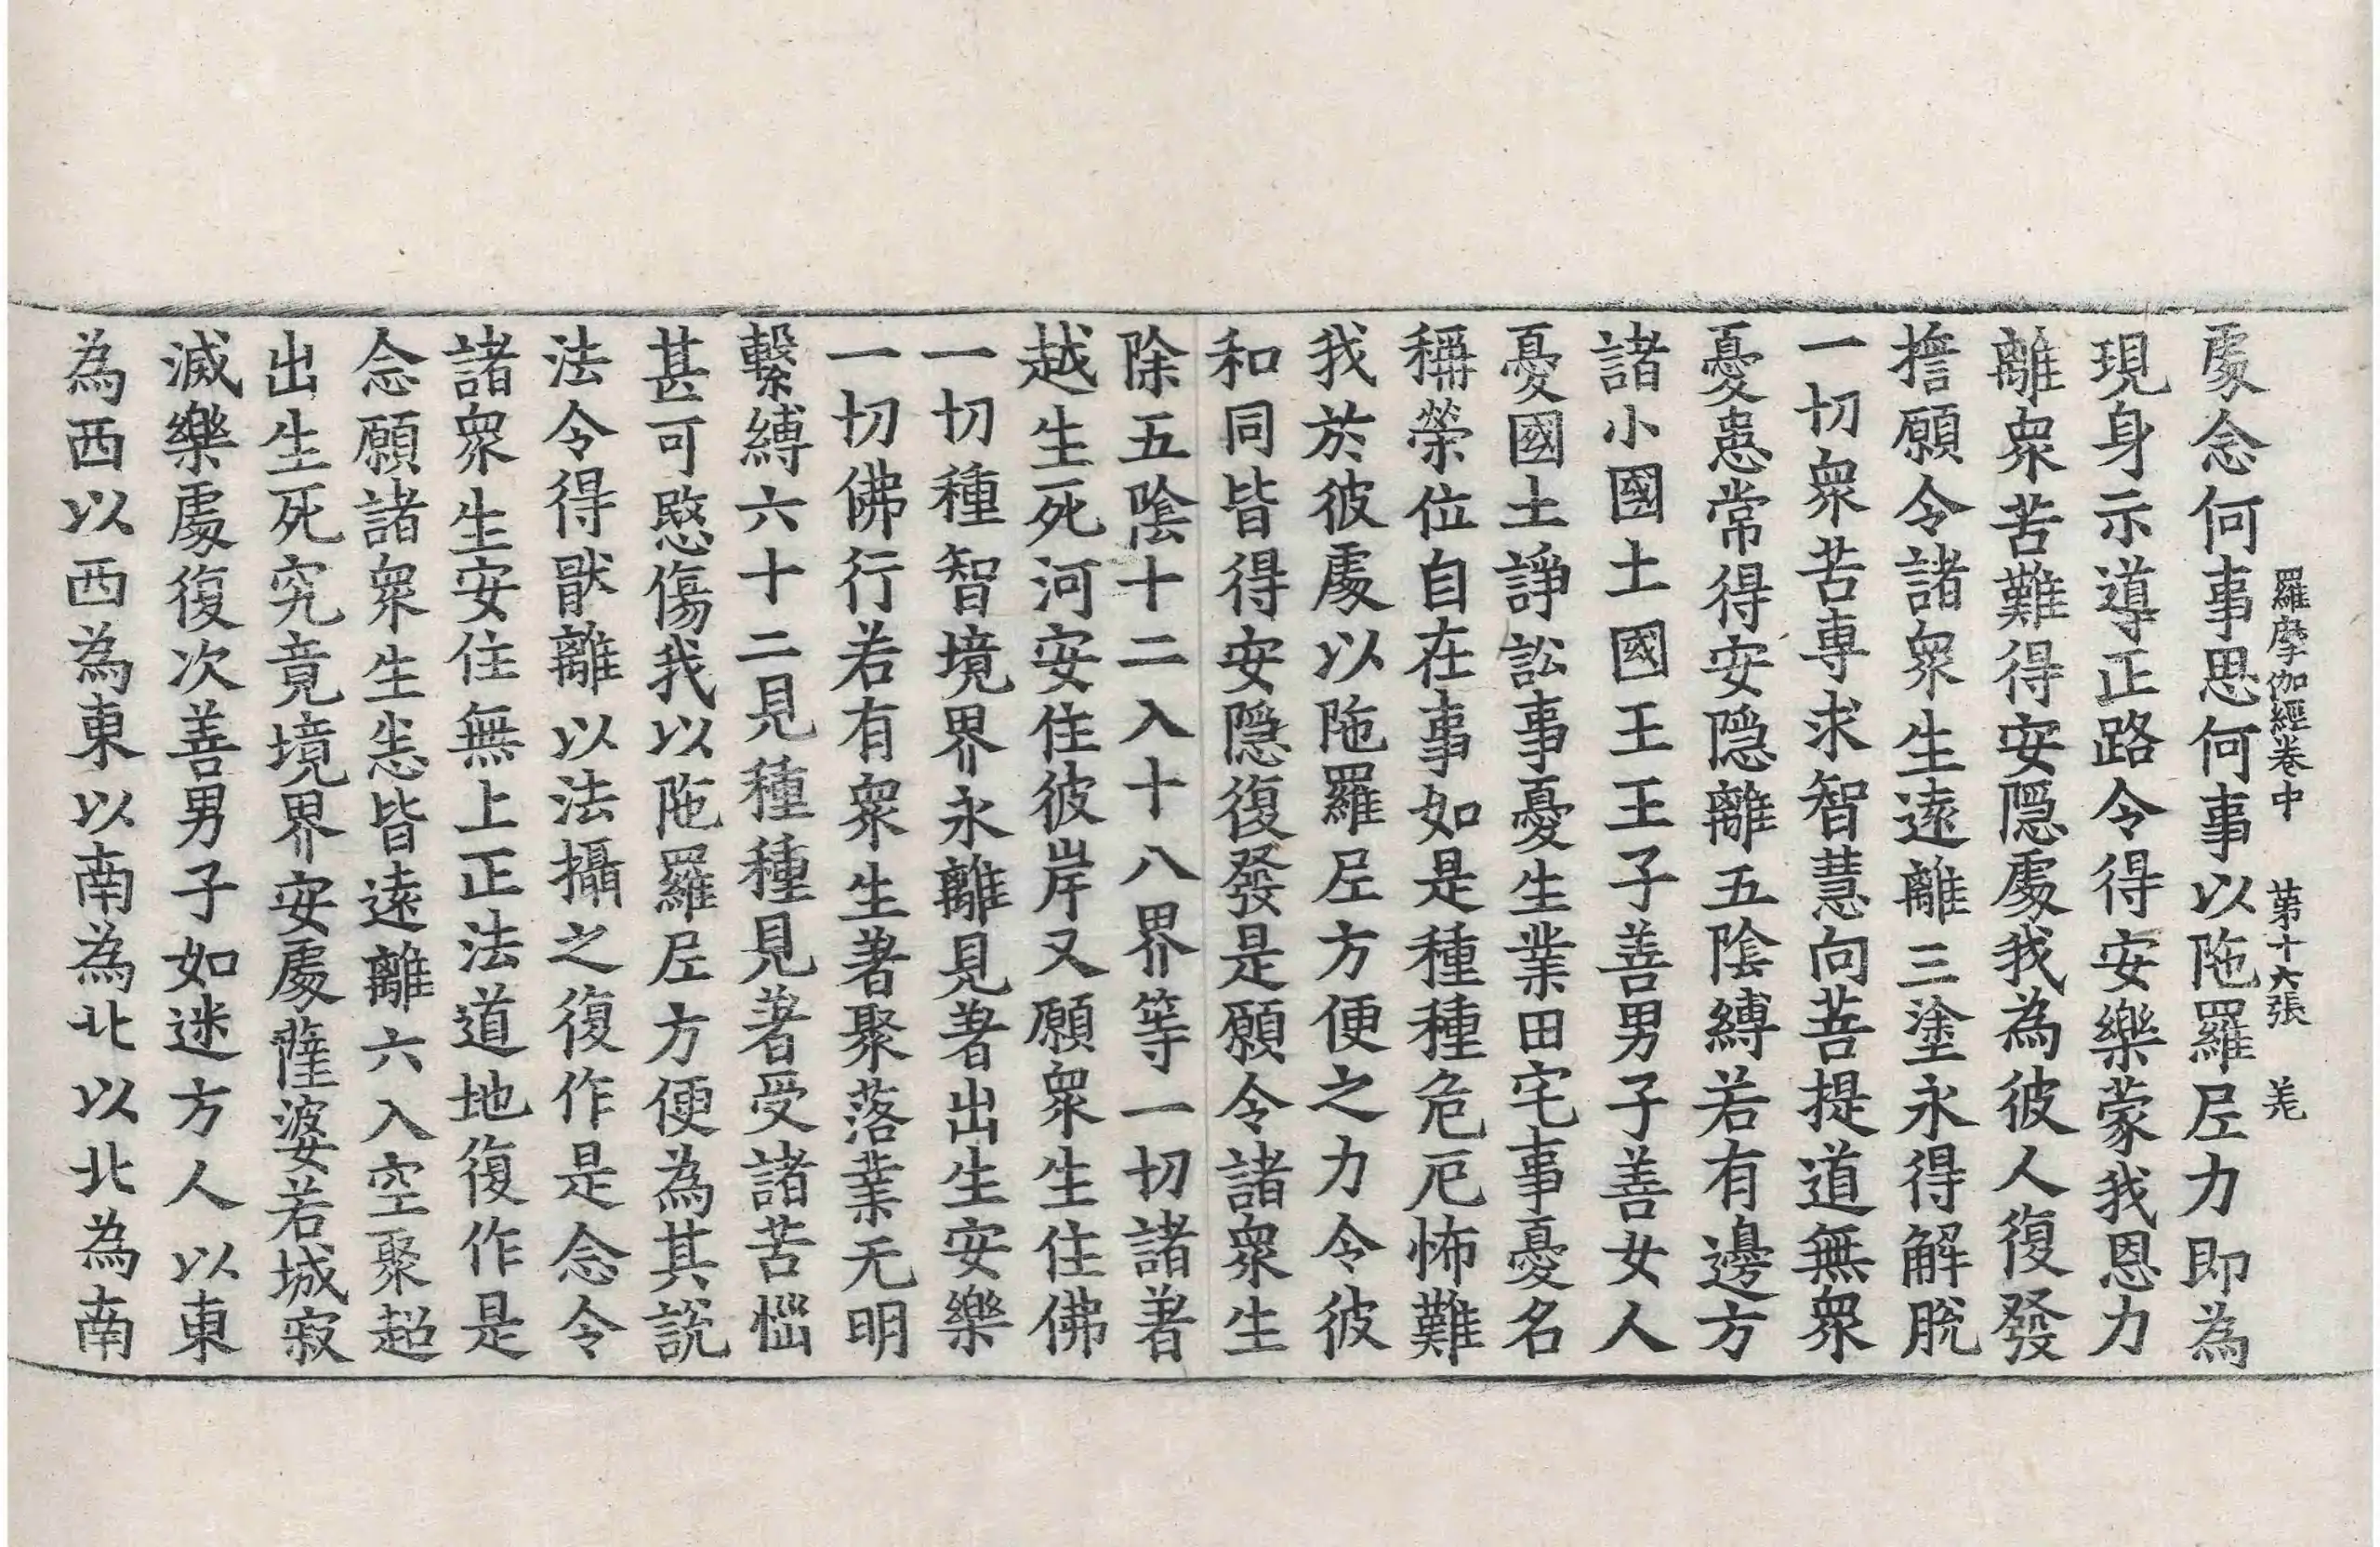 羅摩伽經卷中　第十六張　羌
處念何事思何事以陁羅尼力即為
現身示導正路令得安樂蒙我恩力
離衆苦難得安隱處我為彼人復發
擔願令諸衆生遠離三塗永得解脫
一切衆苦專求智慧向菩提道無衆
憂患常得安隱離五陰縛若有邊方
諸小國土國王王子善男子善女人
憂國土諍訟事憂生業田宅事憂名
稱榮位自在事如是種種危厄怖難
我於彼處以陁羅尼方便之力令彼
和同皆得安隱復發是願令諸衆生
除五陰十二入十八界等一切諸著
越生死河安住彼岸又願衆生住佛
一切種智境界永離見著出生安樂
一切佛行若有衆生著聚落業无明
繫縛六十二見種種見著受諸苦惱
甚可愍傷我以陁羅尼方便為其說
法令得猒離以法攝之復作是念令
諸衆生安住無上正法道地復作是
念願諸衆生恙皆遠離六入空聚超
出生死究竟境界安處薩婆若城寂
滅樂處復次善男子如迷方人以東
為西以西為東以南為北以北為南